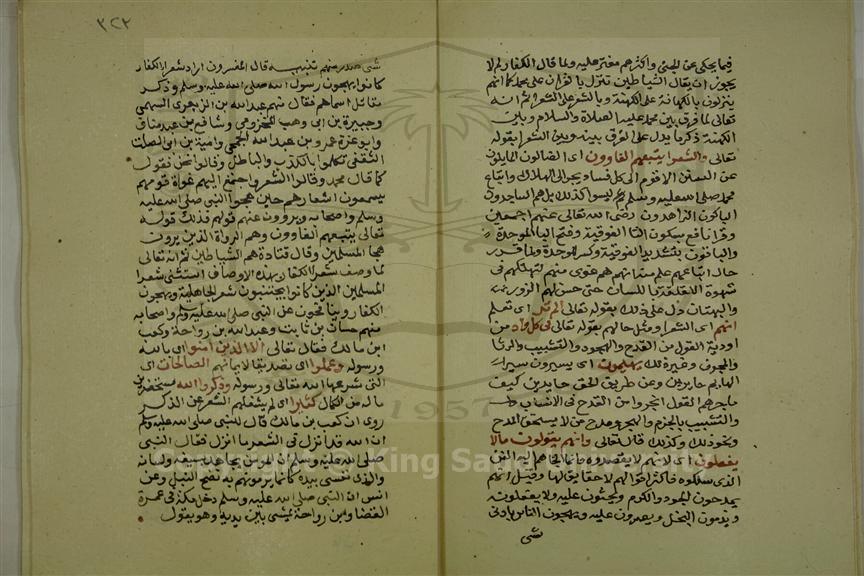 فيما يحكى عن الجني واكثرهم مفتر عليه ولما قال الكفار لم لا
يجوز ان يقال الشياطين تتنزل بالقران على محمد كما انهم
ينزلون بالكهانة على الكهنة وبالشعر على الشعرا ثم انه
تعالى لما فرق بين محمد عليه الصلاة والسلام وبين
الكهنة ذكر ما يدل على الفرق بينه وبين الشعرا بقوله
تعالى والشعرا يتبعهم الغاوون اي الضالون المايلون
عن السنن الاقوم الى كل فساد يجر الى الهلاك واتباع
محمد صلى الله عليه وسلم ليسوا كذلك بل هم الساجدون
الباكون الزاهدون رضى الله تعالى عنهم اجمعين
وقرا نافع بسكون التا الفوقية وفتح البا الموحدة
والباقون بتشديد الفوقية وكسر الموحدة ولما قدر
حال اتباعهم علم منه انهم هم غوى منهم لتهتكهم في
شهوة اللقلقة باللسان حتى حسن لهم الزور
والبهتان دل على ذلك بقوله تعالى الم تر اي تعلم
انهم اي الشعرا ومثل حالهم بقوله تعالى في كل واد من
اودية القول من القدح والهجو والتشبيب والرثا
والمجون وغير ذلك يهيمون اي يسيرون سير
الهايم حايرين وعن طريق الحق حايدين كيف
ما جرهم القول انجروا من القدح في الانساب
والتشبيب بالحرم والهجو ومدح من لا يستحق المدح
ونحو ذلك وكذلك قال تعالى وانهم يقولون مالا
يفعلون اي لانهم لا يقصدونه وانما الجاهم اليه الفن
الذى سلكوه فاكثر اقوالهم لا حقايق لها وقيل انهم
يمدحون الجود والكرم ويحثون عليه ولا يفعلونه
ويذمون البخل ويصرون عليه ويهجون الناس بادنى
شى
٣٢٢
شى صدر منهم تنبيه قال المفسرون اراد شعرا الكفار
كانوا يهجون رسول الله صلى الله عليه وسلم وذكر
مقاتل اسماهم فقال منهم عبد الله بن الزبعرى السهمى
وهبيرة بن ابى وهب المخزومى وشافع بن عبد مناف
وابو عزة عمرو بن عبد الله الجمحى وامية بن ابى الصلت
الثقفى تكلموا بالكذب والباطل وقالوا نحن نقول
كما قال محمد وقالوا الشعر واجتمع اليهم غواة قومهم
يسمعون اشعارهم حين هجوا النبى صلى الله عليه
وسلم واصحابه ويروون عنهم قولهم فذلك قوله
تعالى يتبعهم الغاوون وهم الرواة الذين يروون
هجا المسلمين وقال قتادة هم الشياطين ثم انه تعالى
لما وصف شعرا الكفار بهذه الاوصاف استثنى شعرا
المسلمين الذين كانوا يجتنبون شعر الجاهلية ويهجون
الكفار وينافحون عن النبى صلى الله عليه وسلم واصحابه
منهم حسان بن ثابت وعبد الله بن رواحة وكعب
ابن مالك فقال تعالى الا الذين امنوا اي بالله
ورسوله وعملوا اي تصديقا لايمانهم الصالحات اي
التى شرعها الله تعالى ورسوله وذكروا الله مستحضرين
ماله من الكمال كثيرا اي لم يشغلهم الشعر عن الذكر
روى ان كعب بن مالك قال للنبى صلى الله عليه وسلم
ان الله قد انزل في الشعر ما انزل فقال النبى
صلى الله عليه وسلم ان المومن يجاهد بسيفه ولسانه
والذى نفسى بيده كانما ترمونهم به نضح النبل وعن
انس ان النبى صلى الله عليه وسلم دخل مكة فى عمرة
القضا وابن رواحة يمشى بين يديه وهو يقول
1957
Copyright © King Saud University